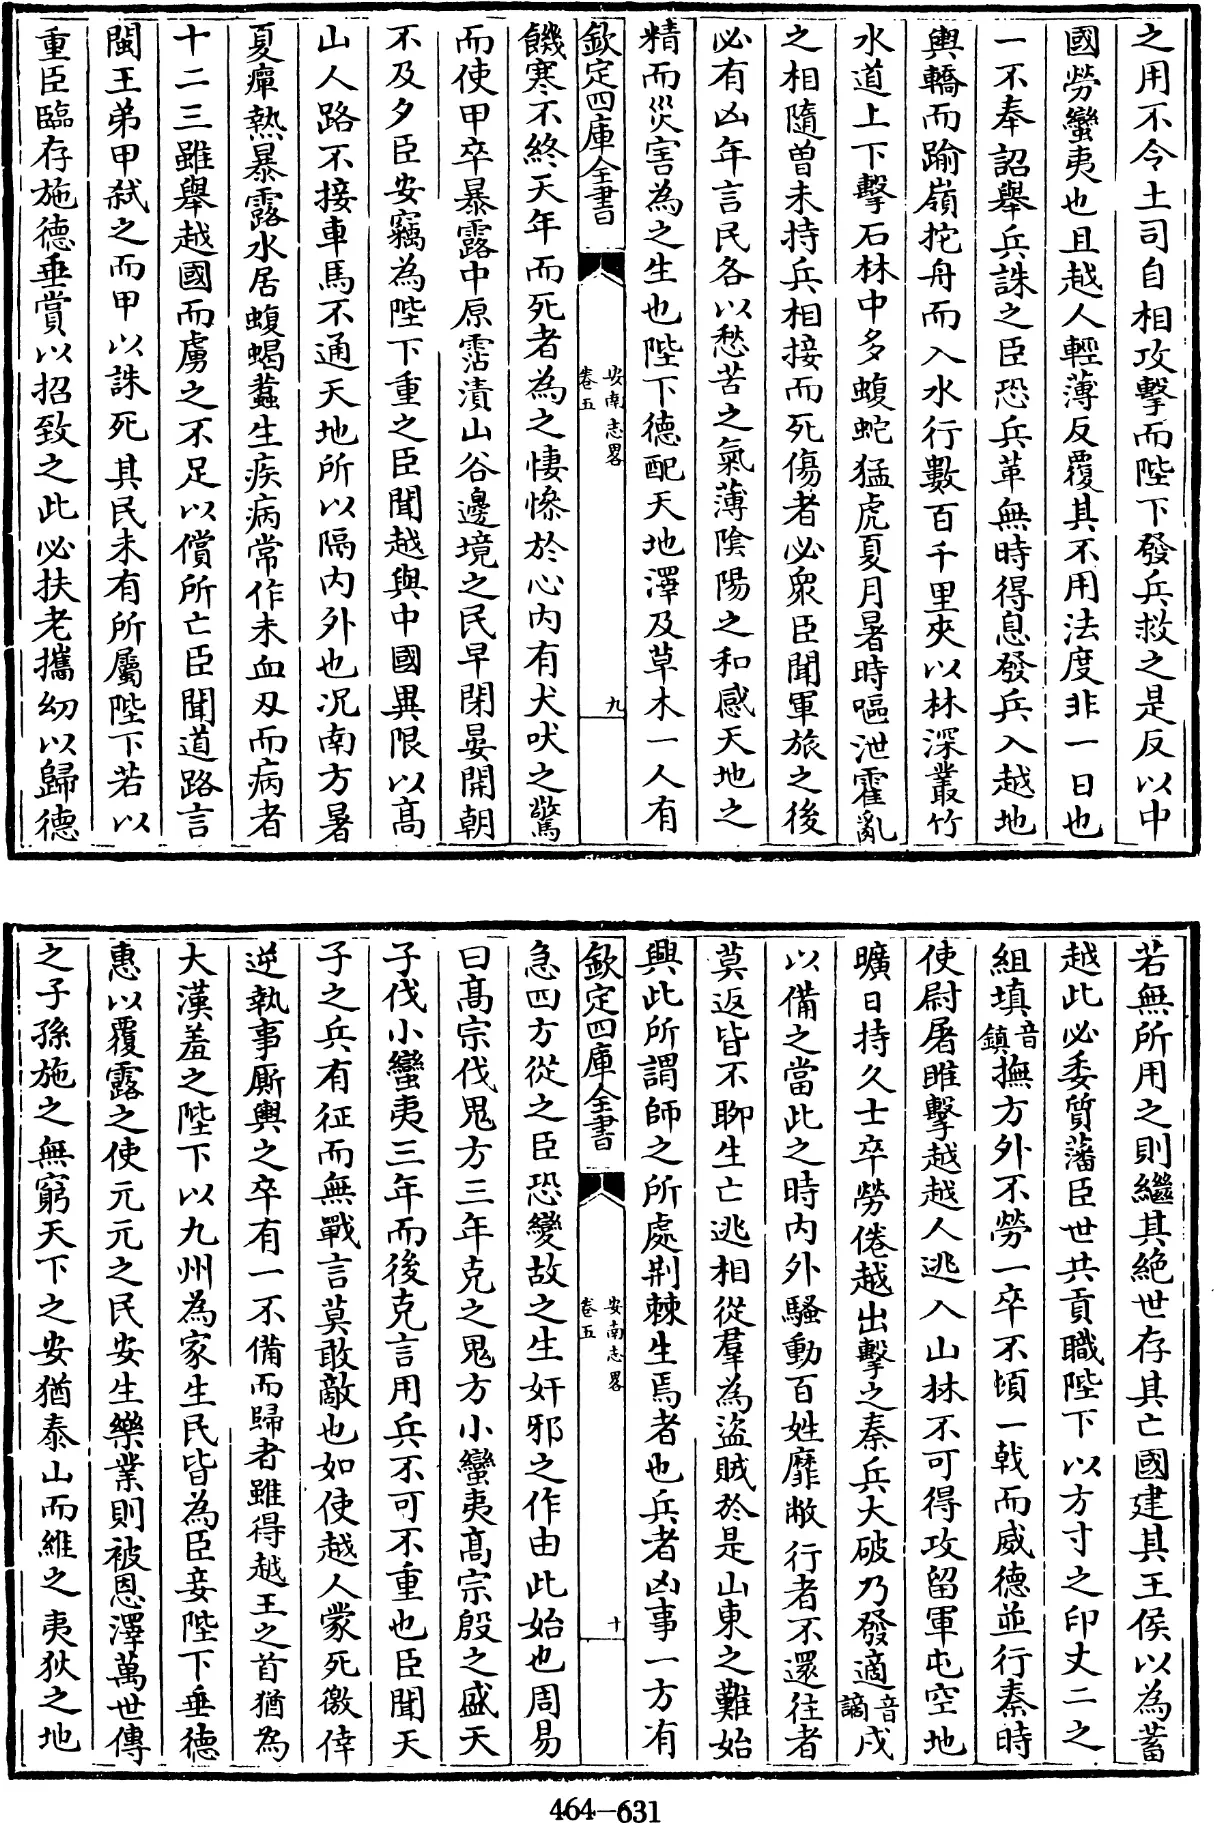 之用不令土司自相攻擊而陛下發兵救之是反以中
國勞蠻夷也且越人輕薄反覆其不用法度非一日也
一不奉詔舉兵誅之臣恐兵革無時得息發兵入越地
輿轎而踰嶺拕舟而入水行數百千里夾以林深叢竹
水道上下擊石林中多蝮蛇猛虎夏月暑時嘔泄霍亂
之相隨曾未持兵相接而死傷者必衆臣聞軍旅之後
必有凶年言民各以愁苦之氣薄陰陽之和感天地之
精而災害為之生也陛下德配天地澤及草木一人有
欽定四庫全書
安南志畧
卷五
九
饑寒不終天年而死者為之悽慘於心内有犬吠之驚
而使甲卒暴露中原霑漬山谷邊境之民早閉晏開朝
不及夕臣安竊為陛下重之臣聞越與中國異限以高
山人路不接車馬不通天地所以隔内外也况南方暑
夏癉熱暴露水居蝮蝎蠚生疾病常作未血刄而病者
十二三雖舉越國而虜之不足以償所亡臣聞道路言
閩王弟甲弑之而甲以誅死其民未有所屬陛下若以
重臣臨存施德垂賞以招致之此必扶老攜幼以歸德
若無所用之則繼其絶世存其亡國建其王侯以為蓄
越此必委質藩臣世共貢職陛下以方寸之印丈二之
組填音鎮撫方外不勞一卒不頓一戟而威德並行秦時
使尉屠睢擊越越人逃入山林不可得攻留軍屯空地
曠日持久士卒勞倦越出擊之秦兵大破乃發適音謫戍
以備之當此之時内外騷動百姓靡敝行者不還往者
莫返皆不聊生亡逃相從羣為盜賊於是山東之難始
興此所謂師之所處荆棘生焉者也兵者凶事一方有
欽定四庫全書
安南志畧
卷五
十
急四方從之臣恐變故之生奸邪之作由此始也周易
曰髙宗伐鬼方三年克之鬼方小蠻夷髙宗殷之盛天
子伐小蠻夷三年而後克言用兵不可不重也臣聞天
子之兵有征而無戰言莫敢敵也如使越人蒙死徼倖
逆執事厮輿之卒有一不備而歸者雖得越王之首猶為
大漢羞之陛下以九州為家生民皆為臣妾陛下垂德
惠以覆露之使元元之民安生樂業則被恩澤萬世傳
之子孫施之無窮天下之安猶泰山而維之夷狄之地
464-631